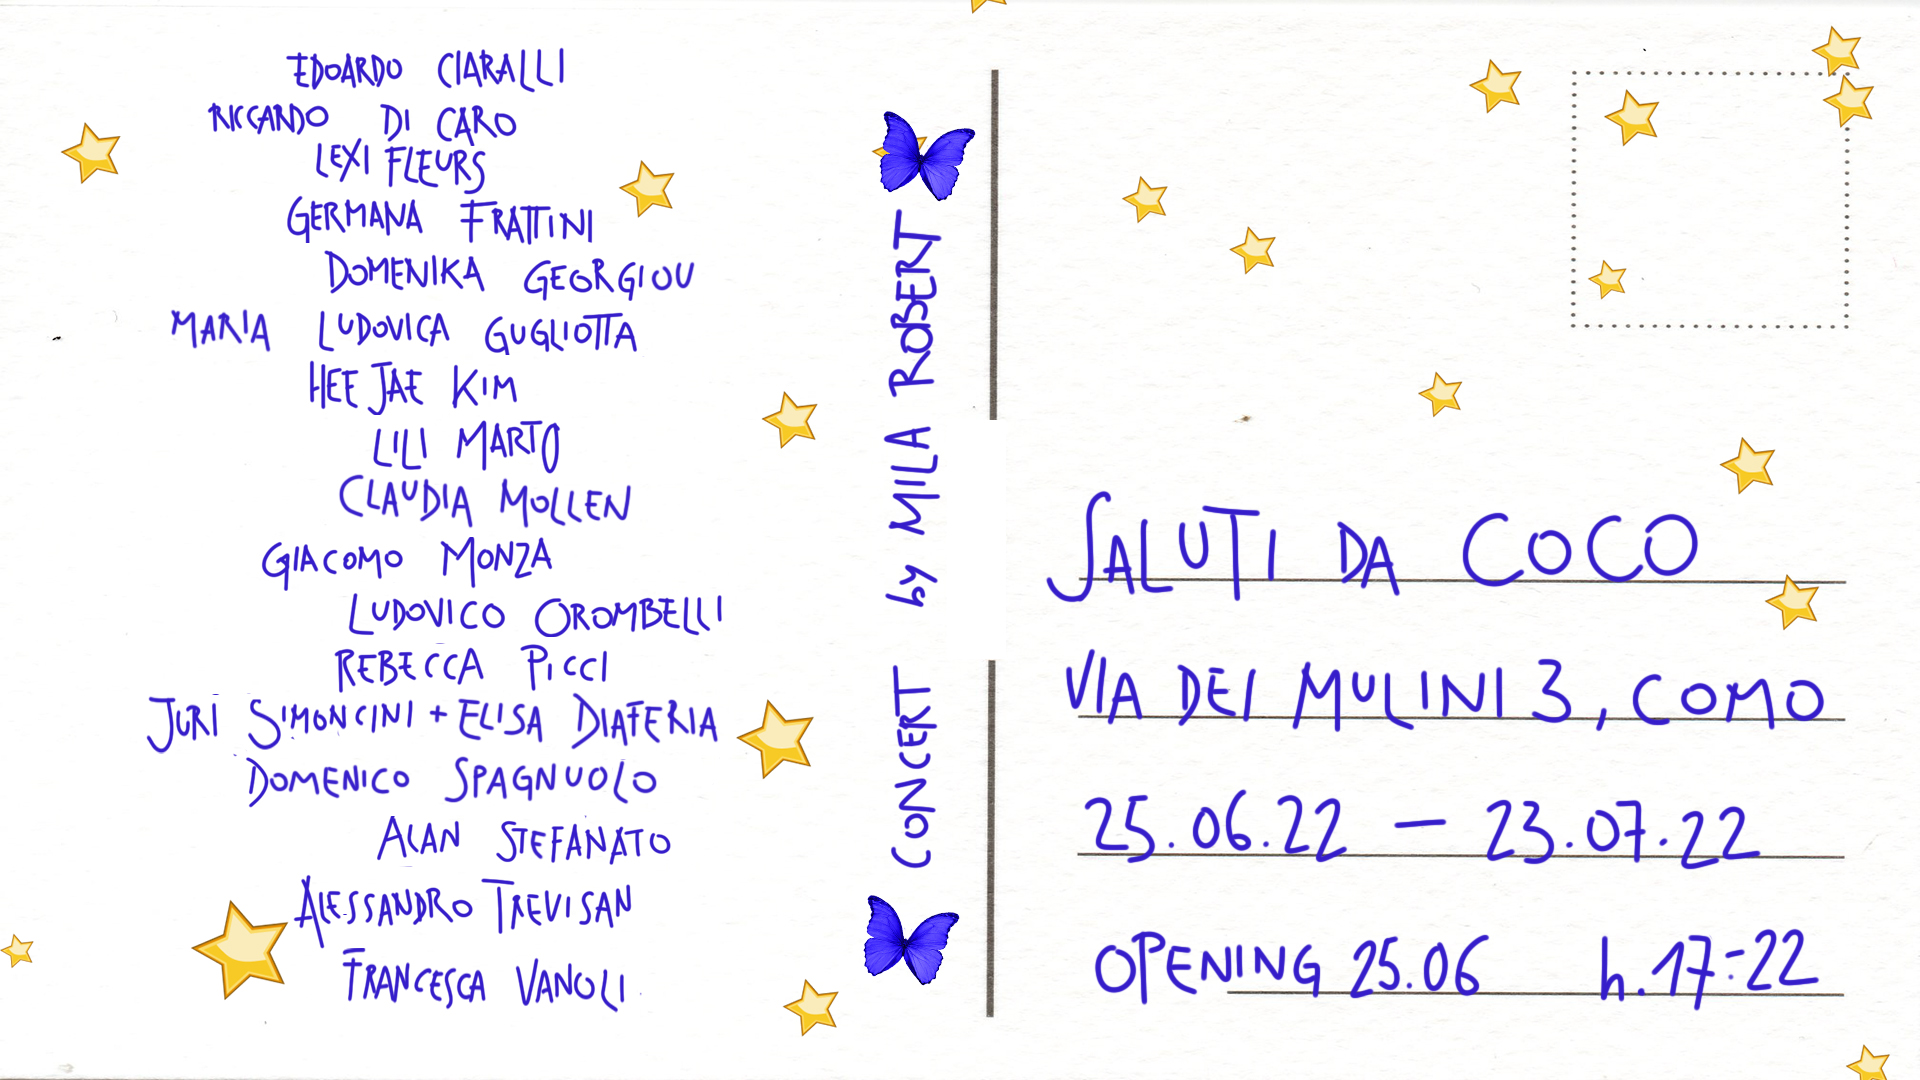 EDOARDO CIARALLI
RICCARDO DI CARO
LEXI FLEURS
GERMANA FRATTINI
DOMENIKA GEORGIOU
MARIA LUDOVICA GUGLIOTTA
HEE JAE KIM
LILI MARTO
CLAUDIA MOLLEN
GIACOMO MONZA
LUDOVICO OROMBELLI
REBECCA PICCI
JURI SIMONCINI + ELISA DIAFERIA
DOMENICO SPAGNUOLO
ALAN STEFANATO
ALESSANDRO TREVISAN
FRANCESCA VANOLI
CONCERT by MILA ROBERT
SALUTI DA COCO
VIA DEI MULINI 3, COMO
25.06.22 — 23.07.22
OPENING 25.06 h.17-22